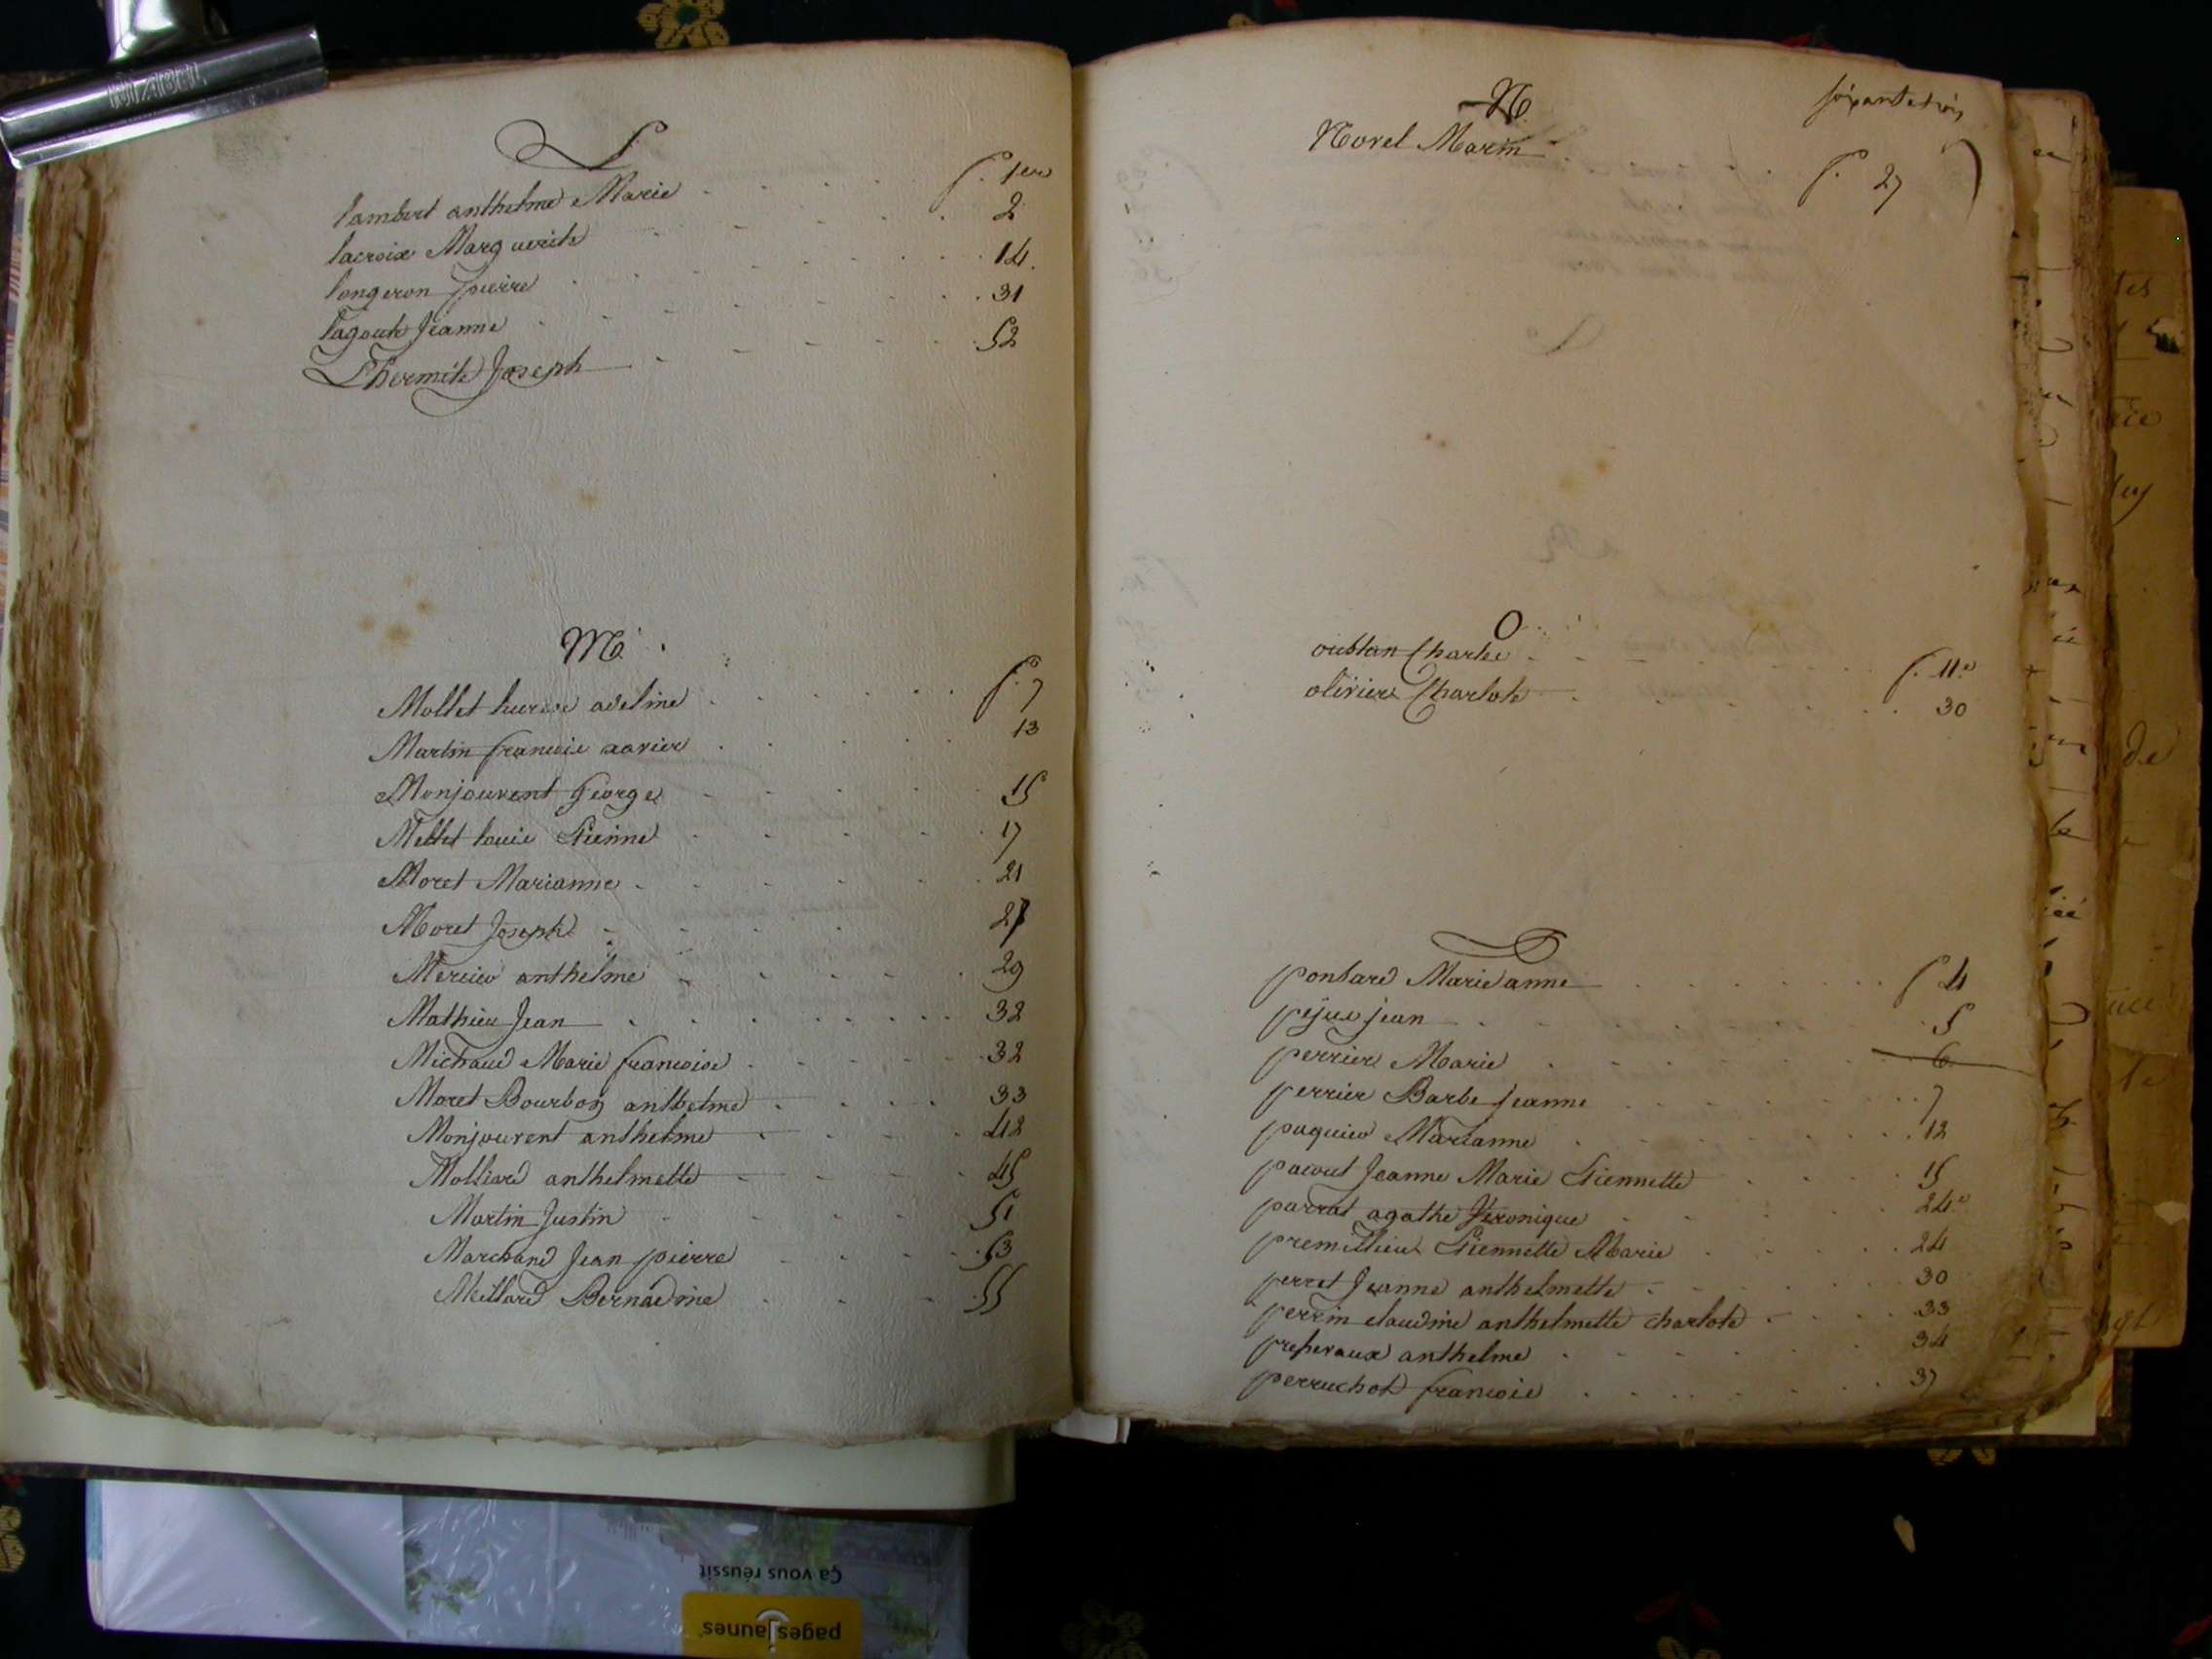 L
lambert anthelme Marie . . . . f. 1er
lacroix Marguerite . . . . 2
longeron pierre . . . . 14.
lagoute Jeanne . . . . 31
Lhermite Joseph . . . . 52
M
Mollet adeline . . . . f. 7
Martin francois xavier . . . . 13
Monjouvent George . . . . 15
Mellet louis Etienne . . . . 17
Moret Marianne . . . . 21
Moret Joseph . . . . 27
Mercier anthelme . . . . 29
Mathieu Jean . . . . 32
Michaud Marie francoise . . . . 32
Moret Bourbon anthelme . . . . 33
Monjouvent anthelme . . . . 42
Molliard anthelmette . . . . 45
Martin Justin . . . . 51
Marchand Jean pierre . . . . 53
Millard Bernadine . . . . 55
soixante trois
N
Norel Marin . . . . f. 27
O
Charles . . . . f. 11e
olivier Charlote . . . . 30
P
ponsard Marie anne . . . . f 4
pejus jean . . . . 5
perrier Marie . . . . 6
perrier Barbe Jeanne . . . . 7
paquier Marianne . . . . 12
pacout Jeanne Marie Etiennette . . . . 15
parrat agathe Veronique . . . . 24e
premillieu Etiennette Marie . . . . 24
perret Jeanne anthelmette . . . . 30
perrin claudine anthelmette charlote . . . . 33
preheraux anthelme . . . . 34
perruchot francois . . . . 37
Ça vous réussit
pagesjaunes